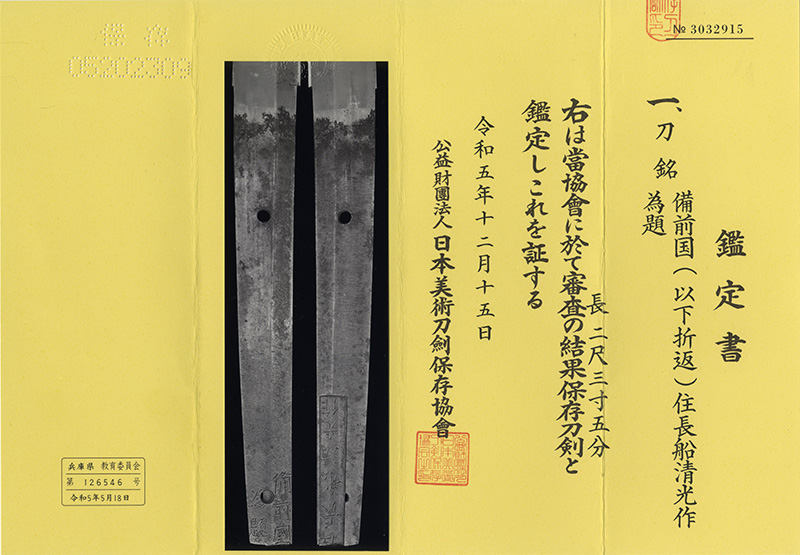 № 3032915
鑑定書
一、刀 銘 備前国(以下折返)住長船清光作
為題
長 二尺三寸五分
右は當協會に於て審査の結果保存刀剣と
鑑定しこれを証する
令和五年十二月十五日
公益財團法人 日本美術刀劍保存協會
保存
05202309
兵庫県 教育委員会
第 126546 号
令和5年5月18日
備前國
為題